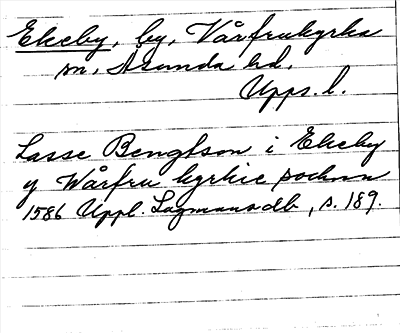 Ekeby, by, Vårfrukyrka
sn, Åsunda hd,
Upps. l.
Lasse Bengtson i Ekeby
y Wårfru kyrkie sochnn
1586 Uppl. Lagmansdb, s. 189.